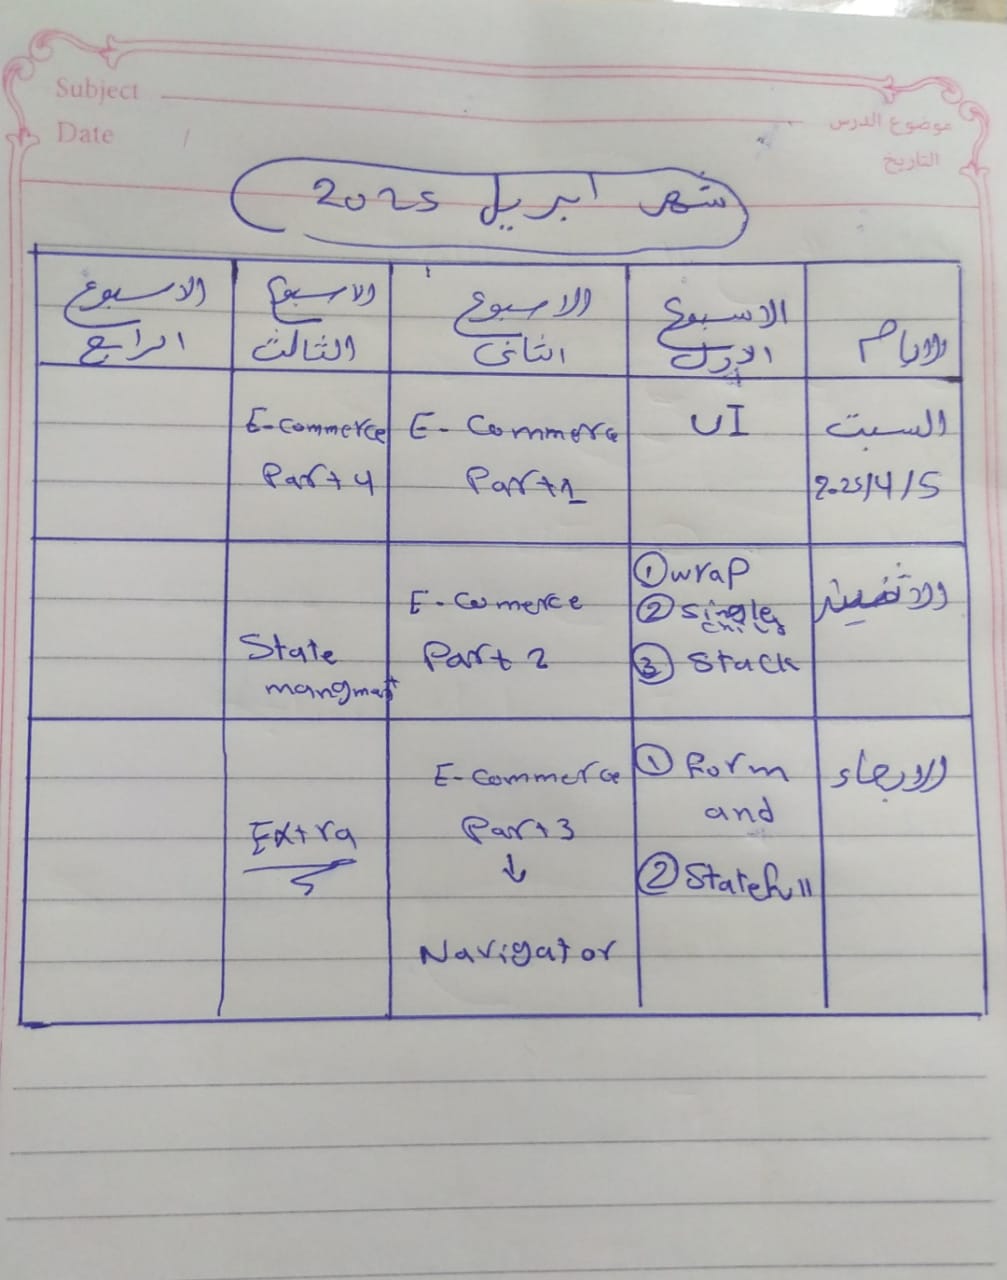 Subject
موضوع الدرس
Date
التاريخ
شهر ابريل 2025
الايام
الاسبوع
الاول
الاسبوع
الثانى
الاسبوع
الثالث
الاسبوع
الرابع
السبت
2025/4/5
UI
E-Commerce
Part 1
E-commerce
Part 4
الاثنين
① wrap
② single
child
③ Stack
E-Comerce
Part 2
State
mangmant
الاربعاء
① Form
and
② Statefull
E-commerce
Part 3
↓
Navigator
Extra